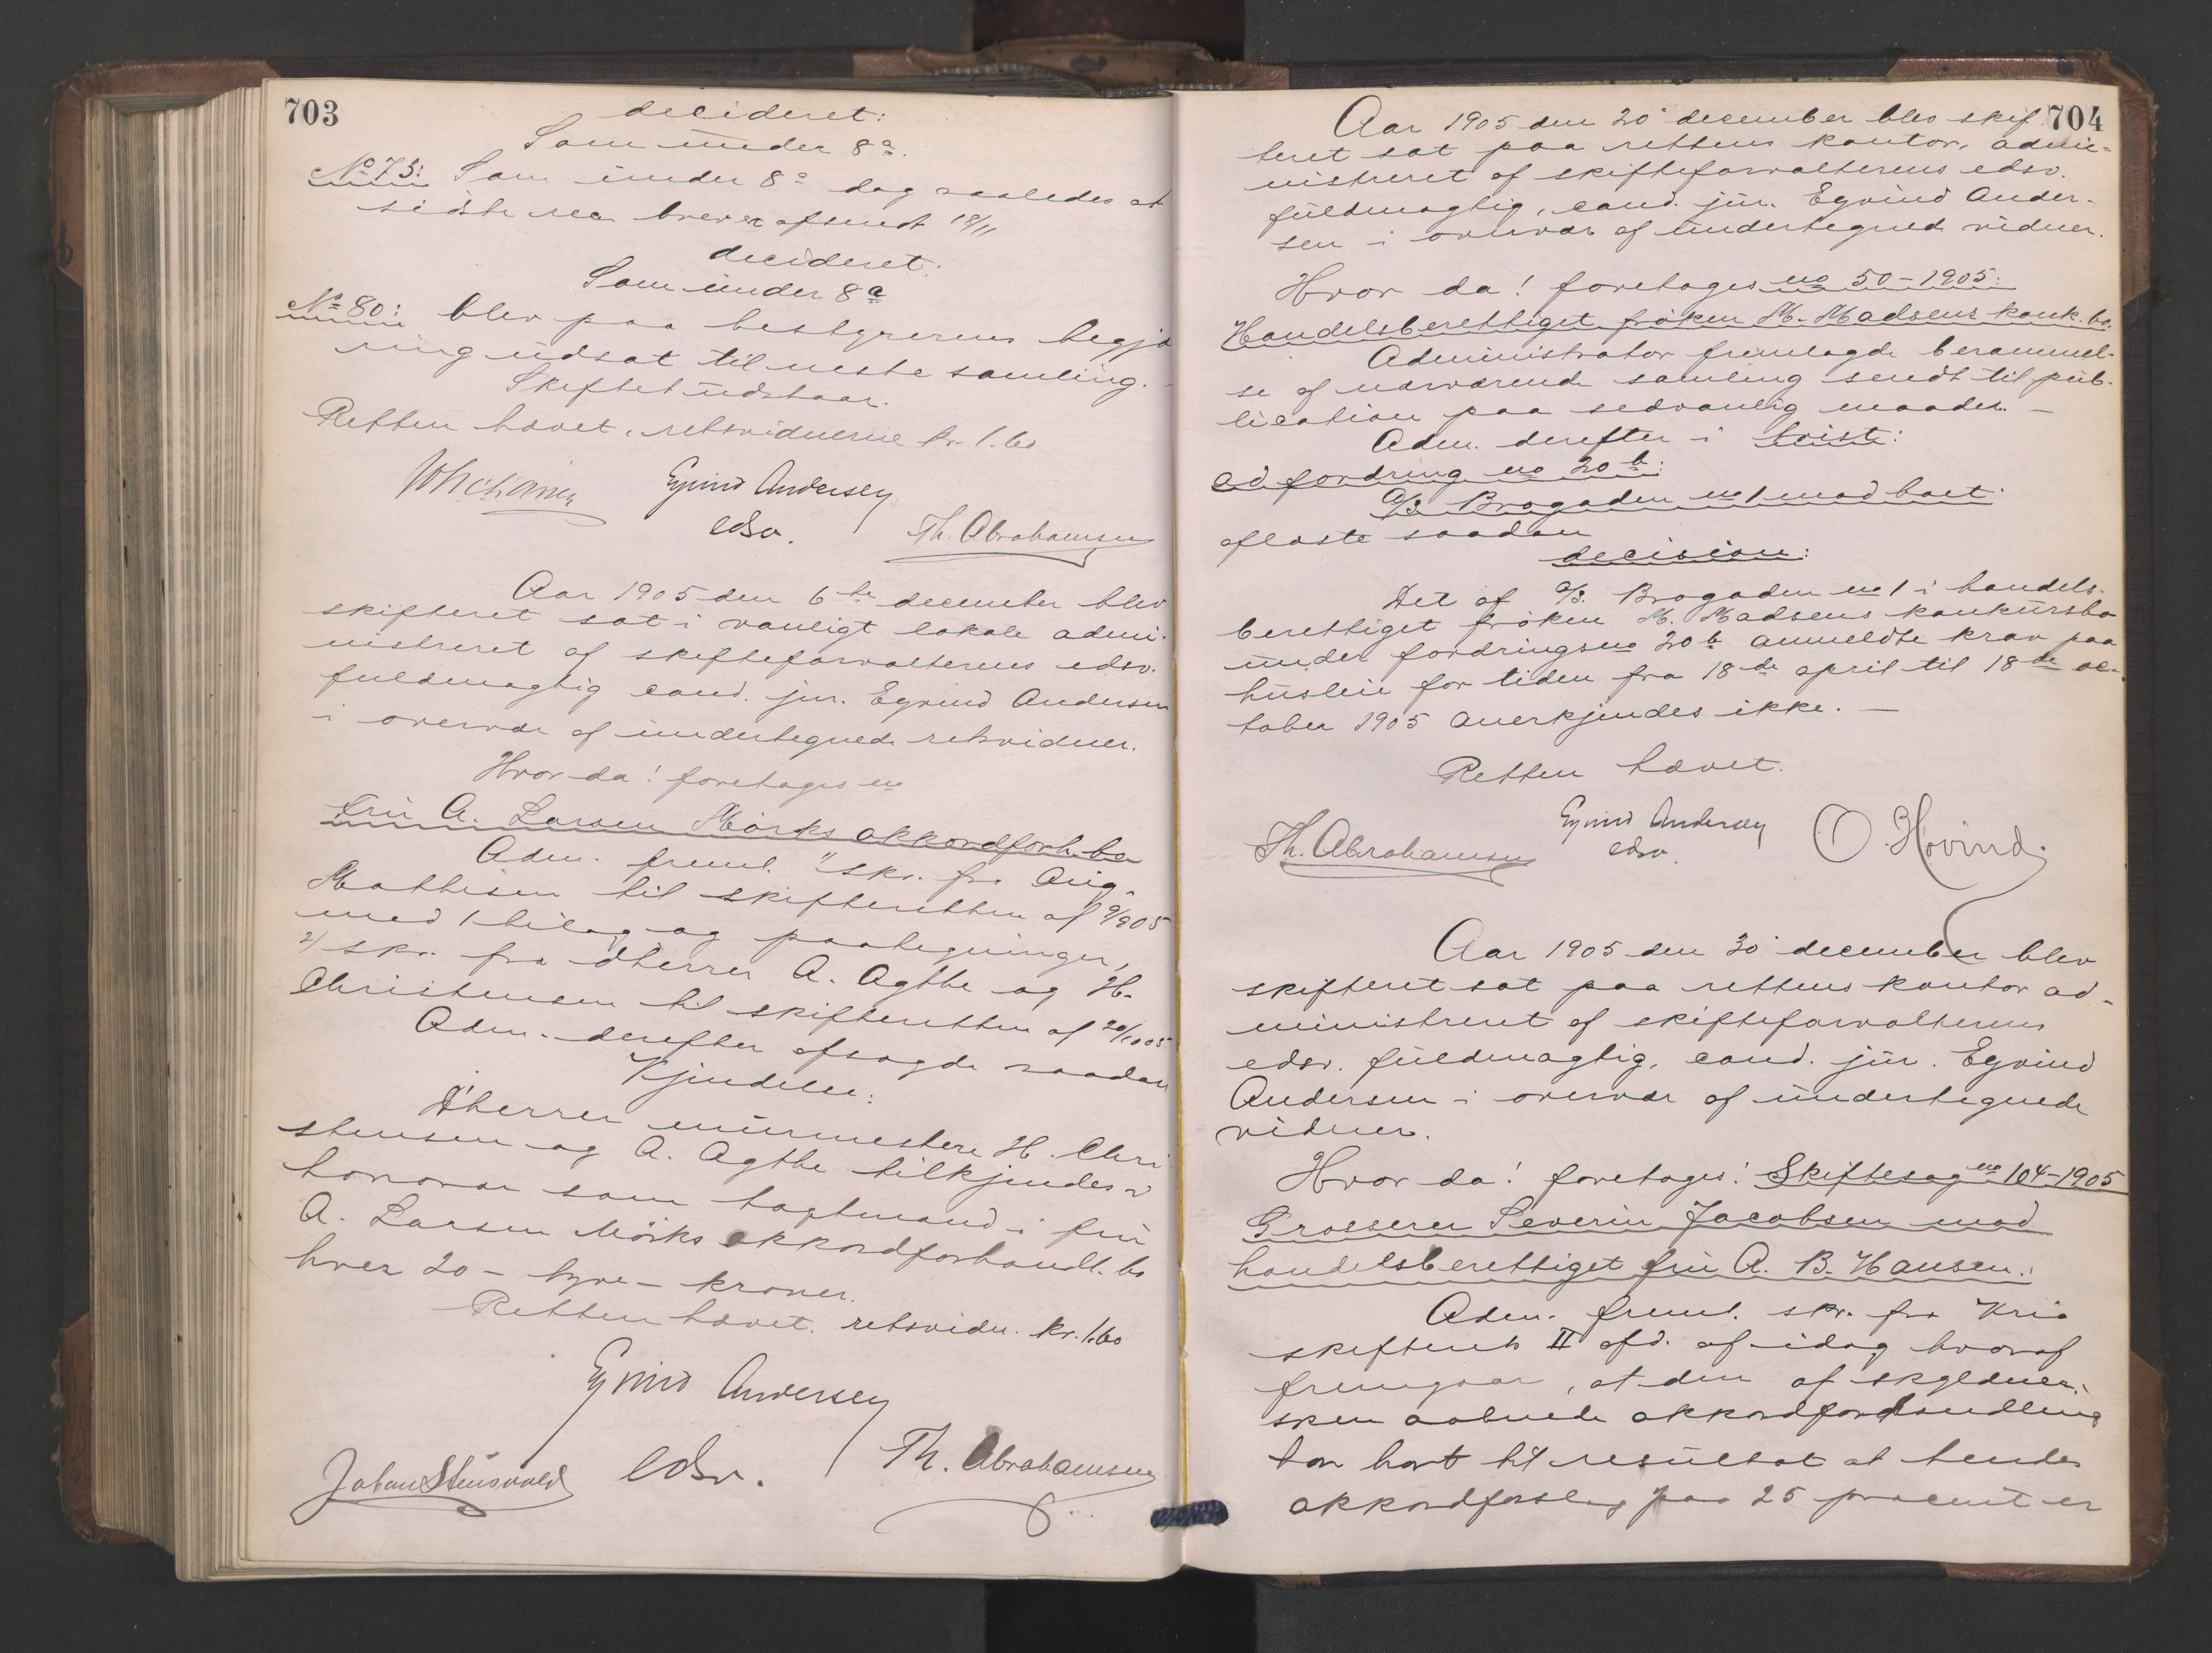 703
decideret:
Som under 8a.
No 73: Som under 8a dog saaledes at
sidste rec. brev er afsendt 18/11
decideret:
Som under 8a
No 80: blev paa bestyrerens begjæ
ring udsat til neste samling. -
Skiftet udstaar.
Retten hævet, retsvidnerne kr. 1.60
Eyvind Andersen
edsv. Th. Abrahamsen
Aar 1905 den 6te december blev
skifteret sat i vanligt lokale admi-
nistreret af skifteforvalterens edsv.
fuldmægtig cand. jur. Eyvind Andersen
i overvær af undertegnede retsvidner.
Hvor da! foretages no
Fru A. Larsen Mørks akkordforh.bo
Adm. freml. 1/ skr. fra Aug.
Mathisen til skifteretten af 9/9 05
med 1 bilag og paategninger,
2/ skr. fra dherrer A. Agthe og H.
Christensen til skifteretten af 20/10 05
Adm. derefter afsagde saadan
Kjendelse:
D'herrer murmestere H. Chri
stensen og A. Agthe tilkjendes i
honorar som tagtmænd i fru
A. Larsen Mörks akkordforhandl. bo
hver 20 - tyve - kroner.
Retten hævet. retsvidn. kr. 1.60
Eyvind Andersen
Johan Stensvold edsv. Th. Abrahamsen
704
Aar 1905 den 20' december blev skif
teret sat paa rettens kontor, admi-
nistreret af skifteforvalterens edsv.
fuldmægtig, cand. jur. Eyvind Ander-
sen i overvær af undertegnede vidner.
Hvor da! foretages no 50-1905:
Handelsberettiget fröken M. Madsens konk. bo.
Administrator fremlagde berammel-
se af nærværende samling sendt til pub-
lication paa sedvanlig maade. -
Adm. derefter i tviste:
ad fordring no 20b:
A/S. Brogaden no 1 mod boet:
aflæste saadan
decision:
Det af A/S. Brogaden no 1 i handels-
berettiget fröken M. Madsens konkursbo
under fordringsno 20b anmeldte krav paa
husleie for tiden fra 18de april til 18de oc-
tober 1905 anerkjendes ikke. -
Retten hævet.
Th. Abrahamsen Eyvind Andersen
edsv. O. Hovind.
Aar 1905 den 30' december blev
skifteret sat paa rettens kontor ad-
ministreret af skifteforvalterens
edsv. fuldmægtig, cand. jur. Eyvind
Andersen i overvær af undertegnede
vidner.
Hvor da! foretages: Skiftesag no 104-1905
Grosserer Severin Jacobsen mod
handelsberettiget fru A. B. Hansen:
Adm. freml. skr. fra Kria
skifterets II afd. af idag hvoraf
fremgaar, at den af skyldner-
sken aabnede akkordforhandling
har havt til resultat at hendes
akkordforslag paa 25 procent er